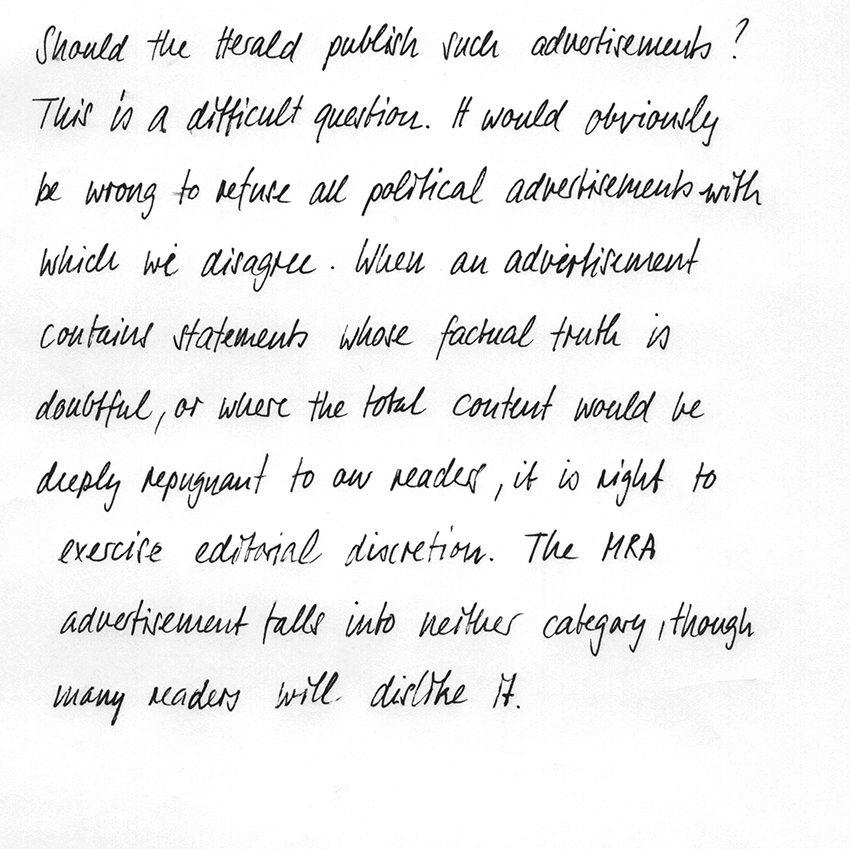 Should the Herald publish such advertisements ?
This is a difficult question. It would obviously
be wrong to refuse all political advertisements with
which we disagree. When an advertisement
contains statements whose factual truth is
doubtful, or where the total content would be
deeply repugnant to our readers, it is right to
exercise editorial discretion. The MRA
advertisement falls into neither category, though
many readers will dislike it.